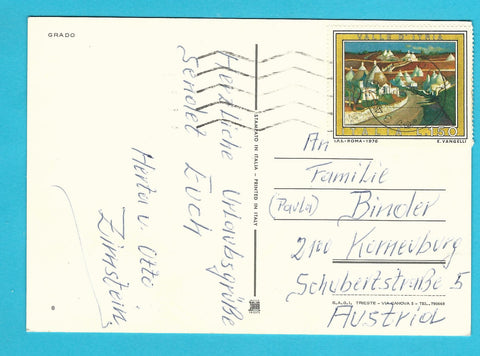 GRADO
Herzliche Urlaubsgrüße
Sendet Euch
Herta u. Otto
Zirnstein
8
STAMPATO IN ITALIA - PRINTED IN ITALY
VALLE D'ITRIA
ITALIA 150
I.P.S. - ROMA - 1976
E. VANGELLI
An
Familie
(Paula) Binder
2100 Korneuburg
Schubertstraße 5
Austria
TRIESTE - VIA CANOVA